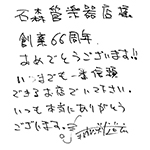 石森管楽器店様
創業66周年
おめでとうございます!!
いつまでも一番信頼
できるお店でいて下さい。
いつも本当にありがとう
ございます。